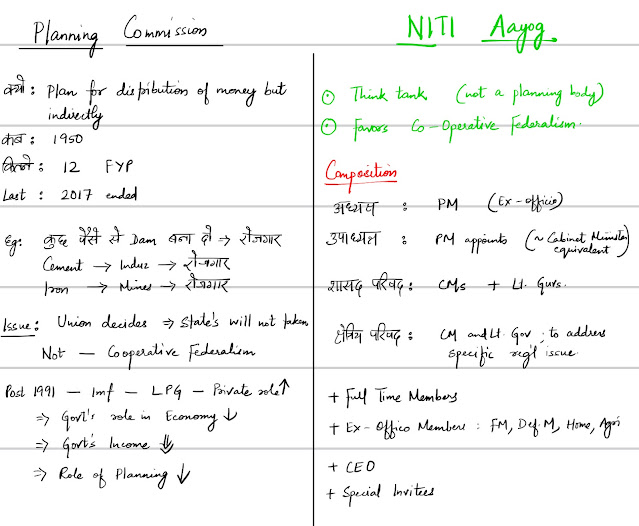 Planning Commission
क्यों : Plan for distribution of money but
indirectly
कब : 1950
कितने : 12 FYP
Last : 2017 ended
Eg: कुछ पैसे से Dam बना दो → रोजगार
Cement → Indus → रोजगार
Iron → Mines → रोजगार
Issue : Union decides ⇒ State's will not taken
Not – Cooperative Federalism
Post 1991 – Imf – LPG – Private role ↑
⇒ Govt's role in Economy ↓
⇒ Govt's Income ↓
⇒ Role of Planning ↓
NITI Aayog
Think tank (not a planning body)
Favors Co-Operative Federalism.
Composition
अध्यक्ष : PM (Ex-officio)
उपाध्यक्ष : PM appoints (~ Cabinet Minister
equivalent)
शासद परिषद : CMs + Lt. Guvs.
क्षेत्रिय परिषद : CM and Lt. Gov ; to address
specific reg'l issue.
+ Full Time Members
+ Ex-Offico Members : FM, Def.M, Home, Agri
+ CEO
+ Special Invitees